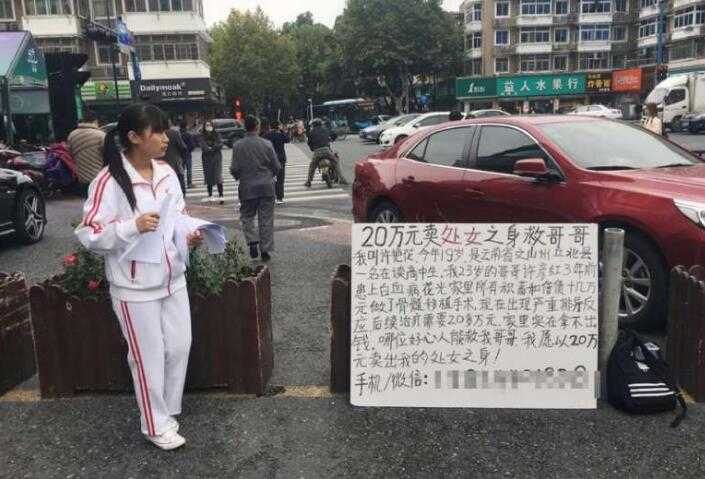 Dailymoak
草人水果行
20万元卖处女之身救哥哥
我叫许艳花今年19岁是云南省文山州丘北县
一名在读高中生,我23岁的哥哥许彦红3年前
患上白血病花光家里所有积蓄和借债十几万
元做了骨髓移植手术,现在出现严重排异反
应后续治疗需要20多万元,家里实在拿不出
钱,哪位好心人能救我哥哥,我愿以20万
元卖出我的处女之身!
手机/微信: